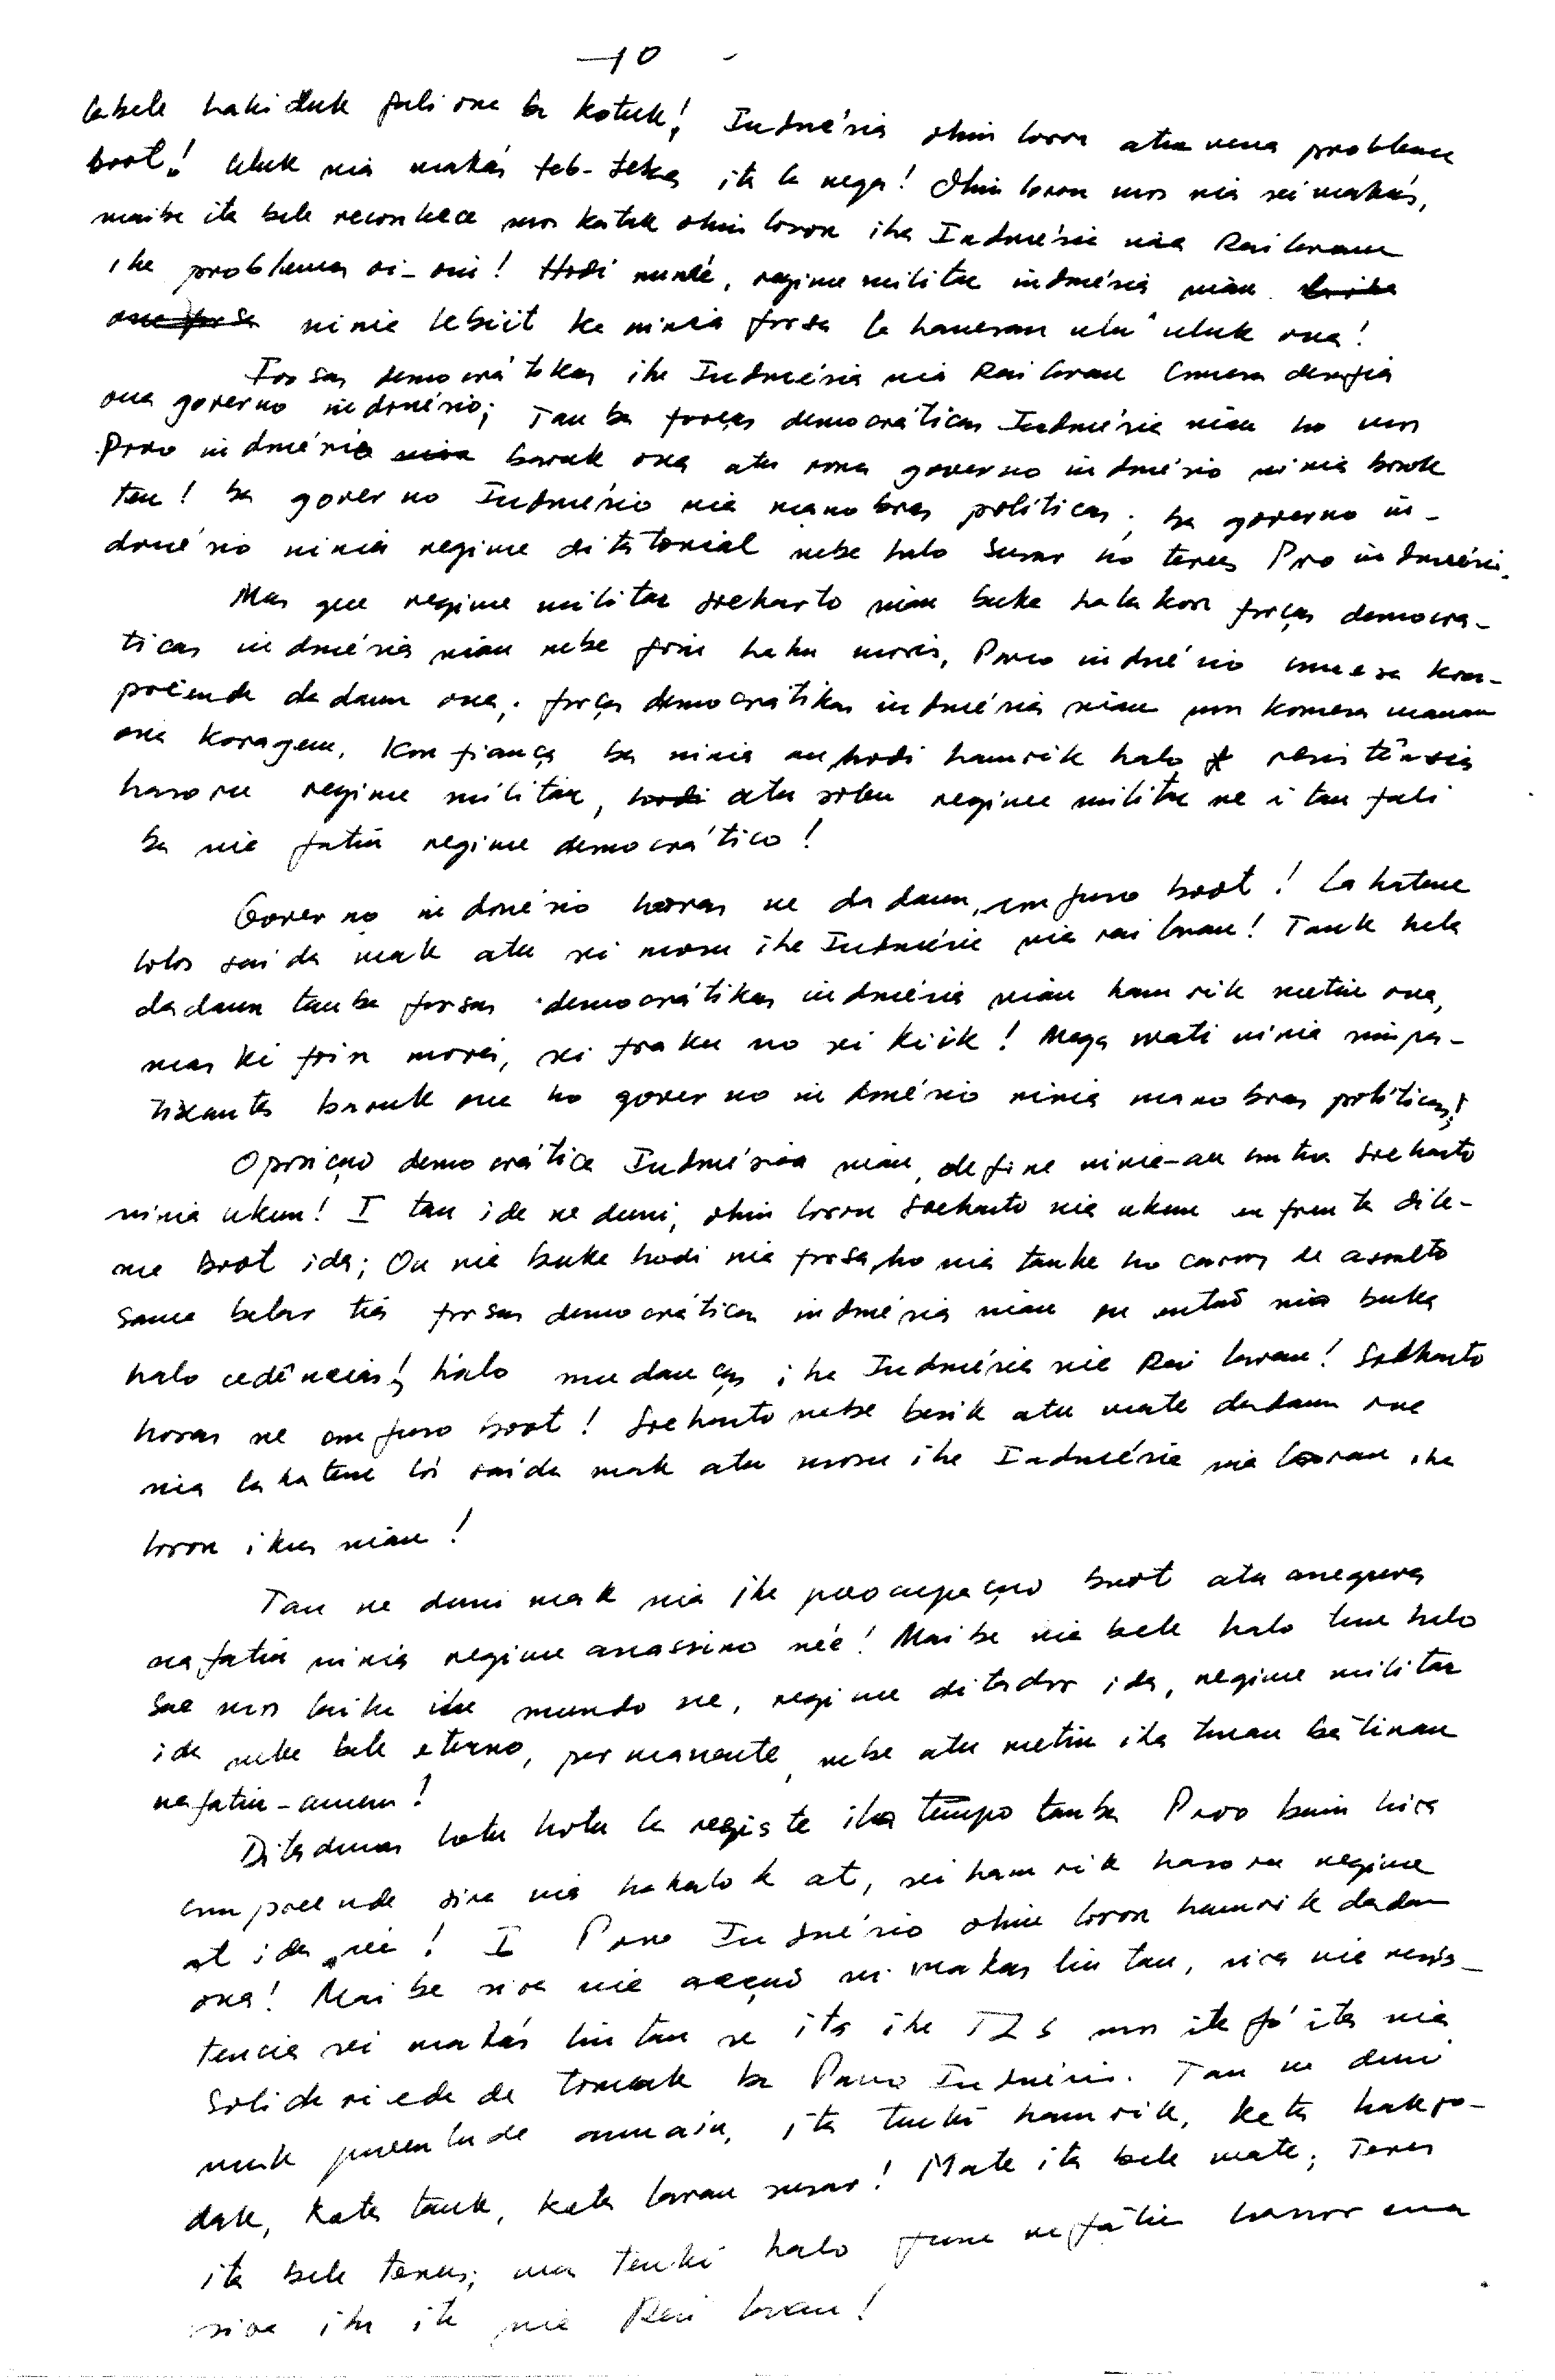 - 10 -
labele hakiduk fali ona ba kotuk! Indonésia ohin loron atu nena problema
boot! Uluk nia makás teb-tebes ita la nega! Ohin loron mos nia sei makás,
maibe ita bele reconhece mos katak ohin loron iha Indonésia nia Rai laran
iha problemas oi-oin! Hodi nune'e, regime militar indonésia nian
ninia kbiit ka ninia forsa la hanesan ulu uluk ona!
Forsas democrátikas iha Indonésia nia Rai laran Comesa desafia
ona governo indonésio; Tan ba forças democráticas Indonésia nian ho mos
Povo indonésio barak ona atu rona governo indonésio ninia bosok
ten! ba governo Indonésio nia manobras políticas; ba governo in-
donésio ninia regime ditatorial nebe halo susar no terus Povo indonésio.
Mas que regime militar Soeharto nian buka halakon forças democra-
ticas indonésia nian nebe foin hahu moris, Povo indonésio comesa kom-
priende dadaun ona; forças democratikas indonésia nian mos komesa manan
ona koragem, konfiança ba ninia an hodi hamrik halo resistência
hasoru regime militar, atu sobu regime militar ne i tau fali
ba nia fatin regime democrático!
Governo indonésio horas ne dadaun, confuso boot! La hatene
lolos saida mak atu sei mosu iha Indonésia nia rai laran! Tauk hela
dadaun tan ba forsas democrátikas indonésia nian hamrik metin ona,
mas ki foin moris, sei fraku no sei kiik! Mega wati ninia simpa-
tizantes baruk ona ho governo indonésio ninia manobras políticas!
Oposição democrática Indonésia nian, define ninia-an contra Soeharto
ninia ukun! I tan ida ne duni, ohin loron Soeharto nia ukun enfrenta dile-
ma boot ida; Ou nia buka hodi nia forsa, ho nia tanke ho carros de assalto
sama belar tia forsas democráticas indonésia nian ou então nia buka
halo cedências! halo mudanças iha Indonésia nia Rai laran! Soeharto
horas ne confuso boot! Soeharto nebe besik atu mate dadaun ona
nia la hatene loi saida mak atu mosu iha Indonésia nia laran iha
loron ikus nian!
Tan ne duni mak nia iha preocupação boot atu assegura
nafatin ninia regime assassino né'e! Maibe nia bele halo tun halo
sae mos laiha iha mundo ne, regime ditador ida, regime militar
ida nebe bele eterno, permanente, nebe atu metin iha tinan bá tinan
nafatin-amen!
Ditaduras hotu hotu la registe iha tempo tanba Povo bain hira
compreende sira nia hahalok at, sei hamrik hasoru regime
at ida nei! I Povo Indonésio ohin loron hamrik dadaun
ona! Maibe sira nia acção sei makas liu tan, sira nia resis-
tencia sei makás liu tan se ita iha TLS mos ita fó ita nia
Solidariedade tomak ba Povo Indonésio. Tan ne duni
mak juventude ita tenki hamrik, keta hakfo-
dak, keta tauk, keta laran susar! Mate ita bele mate; Terus
ita bele terus; mas tenki halo funu nafatin hasoru ema
sira iha ita nia Rai laran!